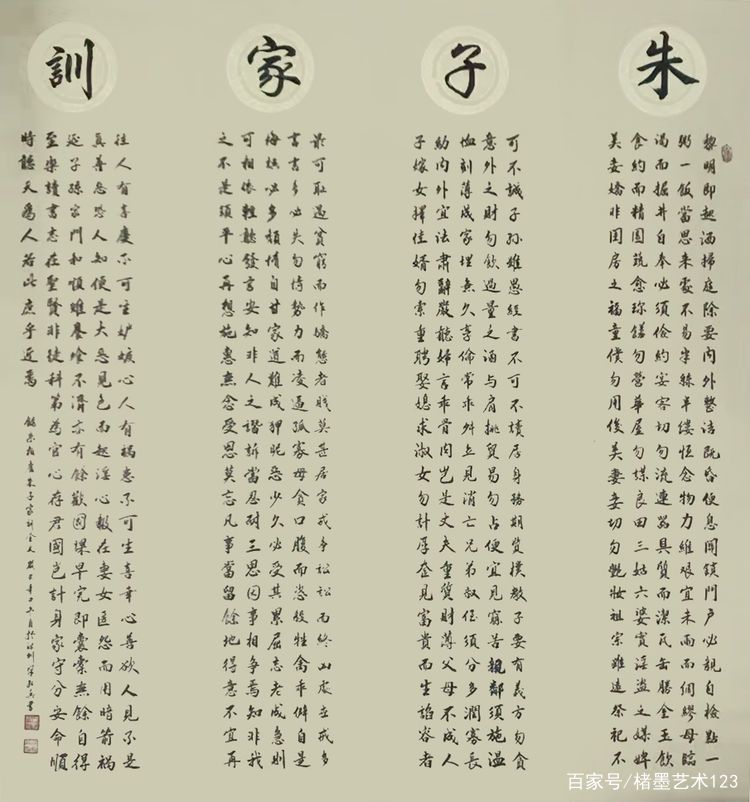 朱子家訓
黎明即起洒掃庭除要內外整洁既昏便息關鎖門戶必親自檢點一
粥一飯當思來處不易半絲半縷恆念物力維艱宜未雨而綢繆毋臨
渴而掘井自奉必須儉約宴客切勿流連器具質而潔瓦缶勝金玉飲
食約而精園蔬愈珍饈勿營華屋勿謀良田三姑六婆實淫盜之媒婢
美妾嬌非閨房之福童僕勿用俊美妻妾切勿艷妝祖宗雖遠祭祀不
可不誠子孫雖愚經書不可不讀居身務期質樸教子要有義方勿貪
意外之財勿飲過量之酒與肩挑貿易勿占便宜見窮苦親鄰須施溫
恤刻薄成家理無久享倫常乖舛立見消亡兄弟叔侄須分多潤寡長
幼內外宜法肅辭嚴聽婦言乖骨肉豈是丈夫重資財薄父母不成人
子嫁女擇佳婿勿索重聘娶媳求淑女勿計厚奩見富貴而生諂容者
最可恥遇貧窮而作驕態者賤莫甚居家戒爭訟訟而終凶處世戒多
言言多必失勿恃勢力而凌逼孤寡毋貪口腹而恣殺牲禽乖僻自是
悔誤必多頹惰自甘家道難成狎昵惡少久必受其累屈志老成急則
可相依輕聽發言安知非人之譖訴當忍耐三思因事相爭焉知非我
之不是須平心再想施惠無念受恩莫忘凡事當留餘地得意不宜再
往人有喜慶不可生妒嫉心人有禍患不可生喜幸心善欲人見不是
真善惡恐人知便是大惡見色而起淫心報在妻女匿怨而用暗箭禍
延子孫家門和順雖饔飧不濟亦有餘歡國課早完即囊橐無餘自得
至樂讀書志在聖賢非徒科第為官心存君國豈計身家守分安命順
時聽天為人若此庶乎近焉
錄朱柏廬朱子家訓全文
百家号/楮墨艺术123